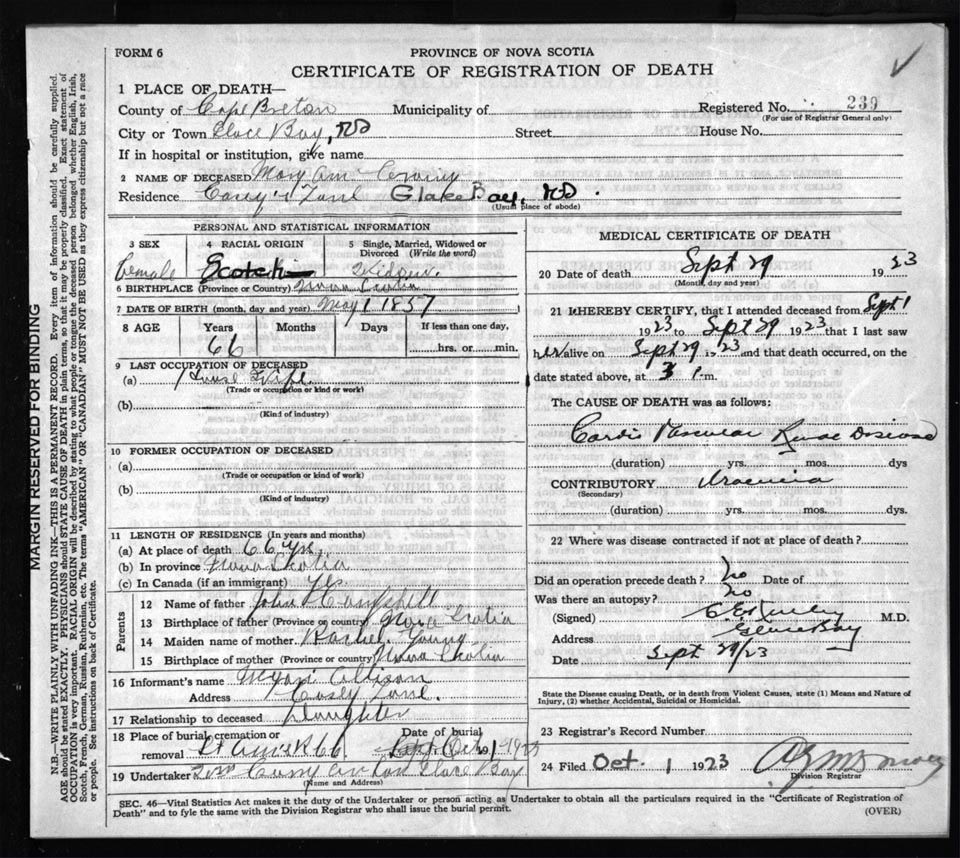 FORM 6
PROVINCE OF NOVA SCOTIA
CERTIFICATE OF REGISTRATION OF DEATH
1 PLACE OF DEATH—
County of Cape Breton Municipality of
Registered No. 239
(For use of Registrar General only)
City or Town Glace Bay, NS Street House No.
If in hospital or institution, give name
2 NAME OF DECEASED Mary Ann
Residence Lane Glace Bay, N.S.
(Usual place of abode)
PERSONAL AND STATISTICAL INFORMATION
3 SEX 4 RACIAL ORIGIN 5 Single, Married, Widowed or Divorced (Write the word)
Female Scotch Widow
6 BIRTHPLACE (Province or Country) Nova Scotia
7 DATE OF BIRTH (month, day and year) May 1 1857
8 AGE Years Months Days If less than one day,
66 hrs. or min.
9 LAST OCCUPATION OF DECEASED
(a) House Wife
(Trade or occupation or kind or work)
(b)
(Kind of industry)
10 FORMER OCCUPATION OF DECEASED
(a)
(Trade or occupation or kind of work)
(b)
(Kind of industry)
11 LENGTH OF RESIDENCE (In years and months)
(a) At place of death 66 yrs.
(b) In province Nova Scotia
(c) In Canada (if an immigrant) yes
Parents
12 Name of father John Campbell
13 Birthplace of father (Province or country) Nova Scotia
14 Maiden name of mother Rachel Young
15 Birthplace of mother (Province or country) Nova Scotia
16 Informant's name
Address Lane.
17 Relationship to deceased Daughter
18 Place of burial, cremation or removal Date of burial
Oct 1 1923
19 Undertaker Glace Bay
(Name and Address)
MEDICAL CERTIFICATE OF DEATH
20 Date of death Sept 29 1923
(Month, day and year)
21 I HEREBY CERTIFY, that I attended deceased from Sept 1
1923 to Sept 29 1923 that I last saw
her alive on Sept 29 1923 and that death occurred, on the
date stated above, at 3 .m.
The CAUSE OF DEATH was as follows:
Cardio Vascular Renal Disease
(duration) yrs. mos. dys
CONTRIBUTORY Uraemia
(Secondary)
(duration) yrs. mos. dys.
22 Where was disease contracted if not at place of death?
Did an operation precede death? no Date of
Was there an autopsy? no
(Signed) M.D.
Address Glace Bay
Date Sept 29/23
State the Disease causing Death, or in death from Violent Causes, state (1) Means and Nature of
Injury, (2) whether Accidental, Suicidal or Homicidal.
23 Registrar's Record Number
24 Filed Oct. 1 1923
Division Registrar
SEC. 46—Vital Statistics Act makes it the duty of the Undertaker or person acting as Undertaker to obtain all the particulars required in the "Certificate of Registration of
Death" and to fyle the same with the Division Registrar who shall issue the burial permit. (OVER)
MARGIN RESERVED FOR BINDING
N.B.—WRITE PLAINLY WITH UNFADING INK—THIS IS A PERMANENT RECORD. Every item of information should be carefully supplied.
AGE should be stated EXACTLY. PHYSICIANS should STATE CAUSE OF DEATH in plain terms, so that it may be properly classified. Exact statement of
OCCUPATION is very important. RACIAL ORIGIN will be described by stating to what people or tongue the deceased person belonged whether English, Irish,
Scotch, French, German, Russian, Ruthenian, etc. The terms "AMERICAN" OR "CANADIAN" MUST NOT BE USED as they express citizenship but not a race
or people. See instructions on back of Certificate.